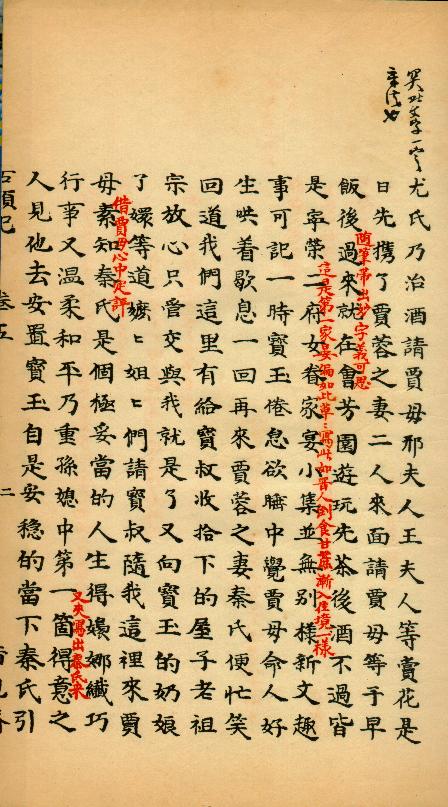 尤氏乃治酒請賈毋邢夫人王夫人等賞花是
日先携了賈蓉之妻二人來面請賈毋等于早
隨筆帶出妙字義可思
飯後過來就在會芳園遊玩先茶後酒不過皆
這是第一家宴偏如此草〻寫此如晋人倒食甘蔗漸入佳境一樣
是寧榮二府女眷家宴小集並無別樣新文趣
事可記一時寶玉倦怠欲睡中覺賈毋命人好
生哄着歇息一回再來賈蓉之妻秦氏便忙笑
回道我們這里有給寶叔收拾下的屋子老祖
宗放心只管交與我就是了又向寶玉的奶娘
了嬛等道嬷〻姐〻們請寶叔隨我這裡來賈
借賈毋心中定評
毋素知秦氏是個極妥當的人生得嬝娜纖巧
又夾寫出秦氏來
行事又温柔和平乃重孫媳中第一箇得意之
人見他去安置寶玉自是安穩的當下秦氏引
石頭記 卷五 二